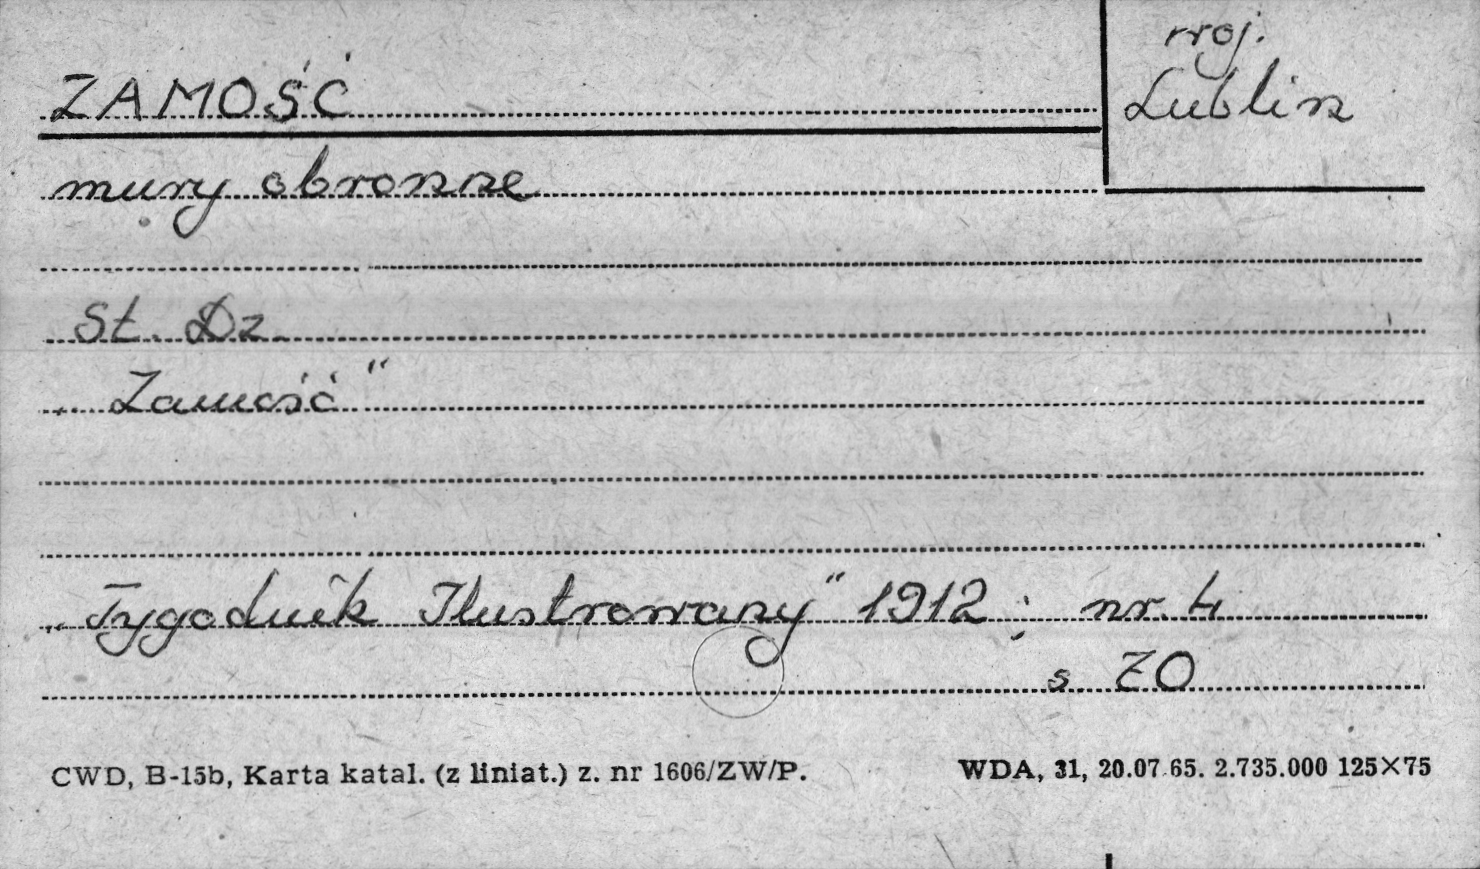 ZAMOŚĆ
woj.
Lublin
mury obronne
St. Dz.
„Zamość"
„Tygodnik Ilustrowany" 1912; nr. 4
s. 70
CWD, B-15b, Karta katal. (z liniat.) z. nr 1606/ZW/P.
WDA, 31, 20.07.65. 2.735.000 125×75